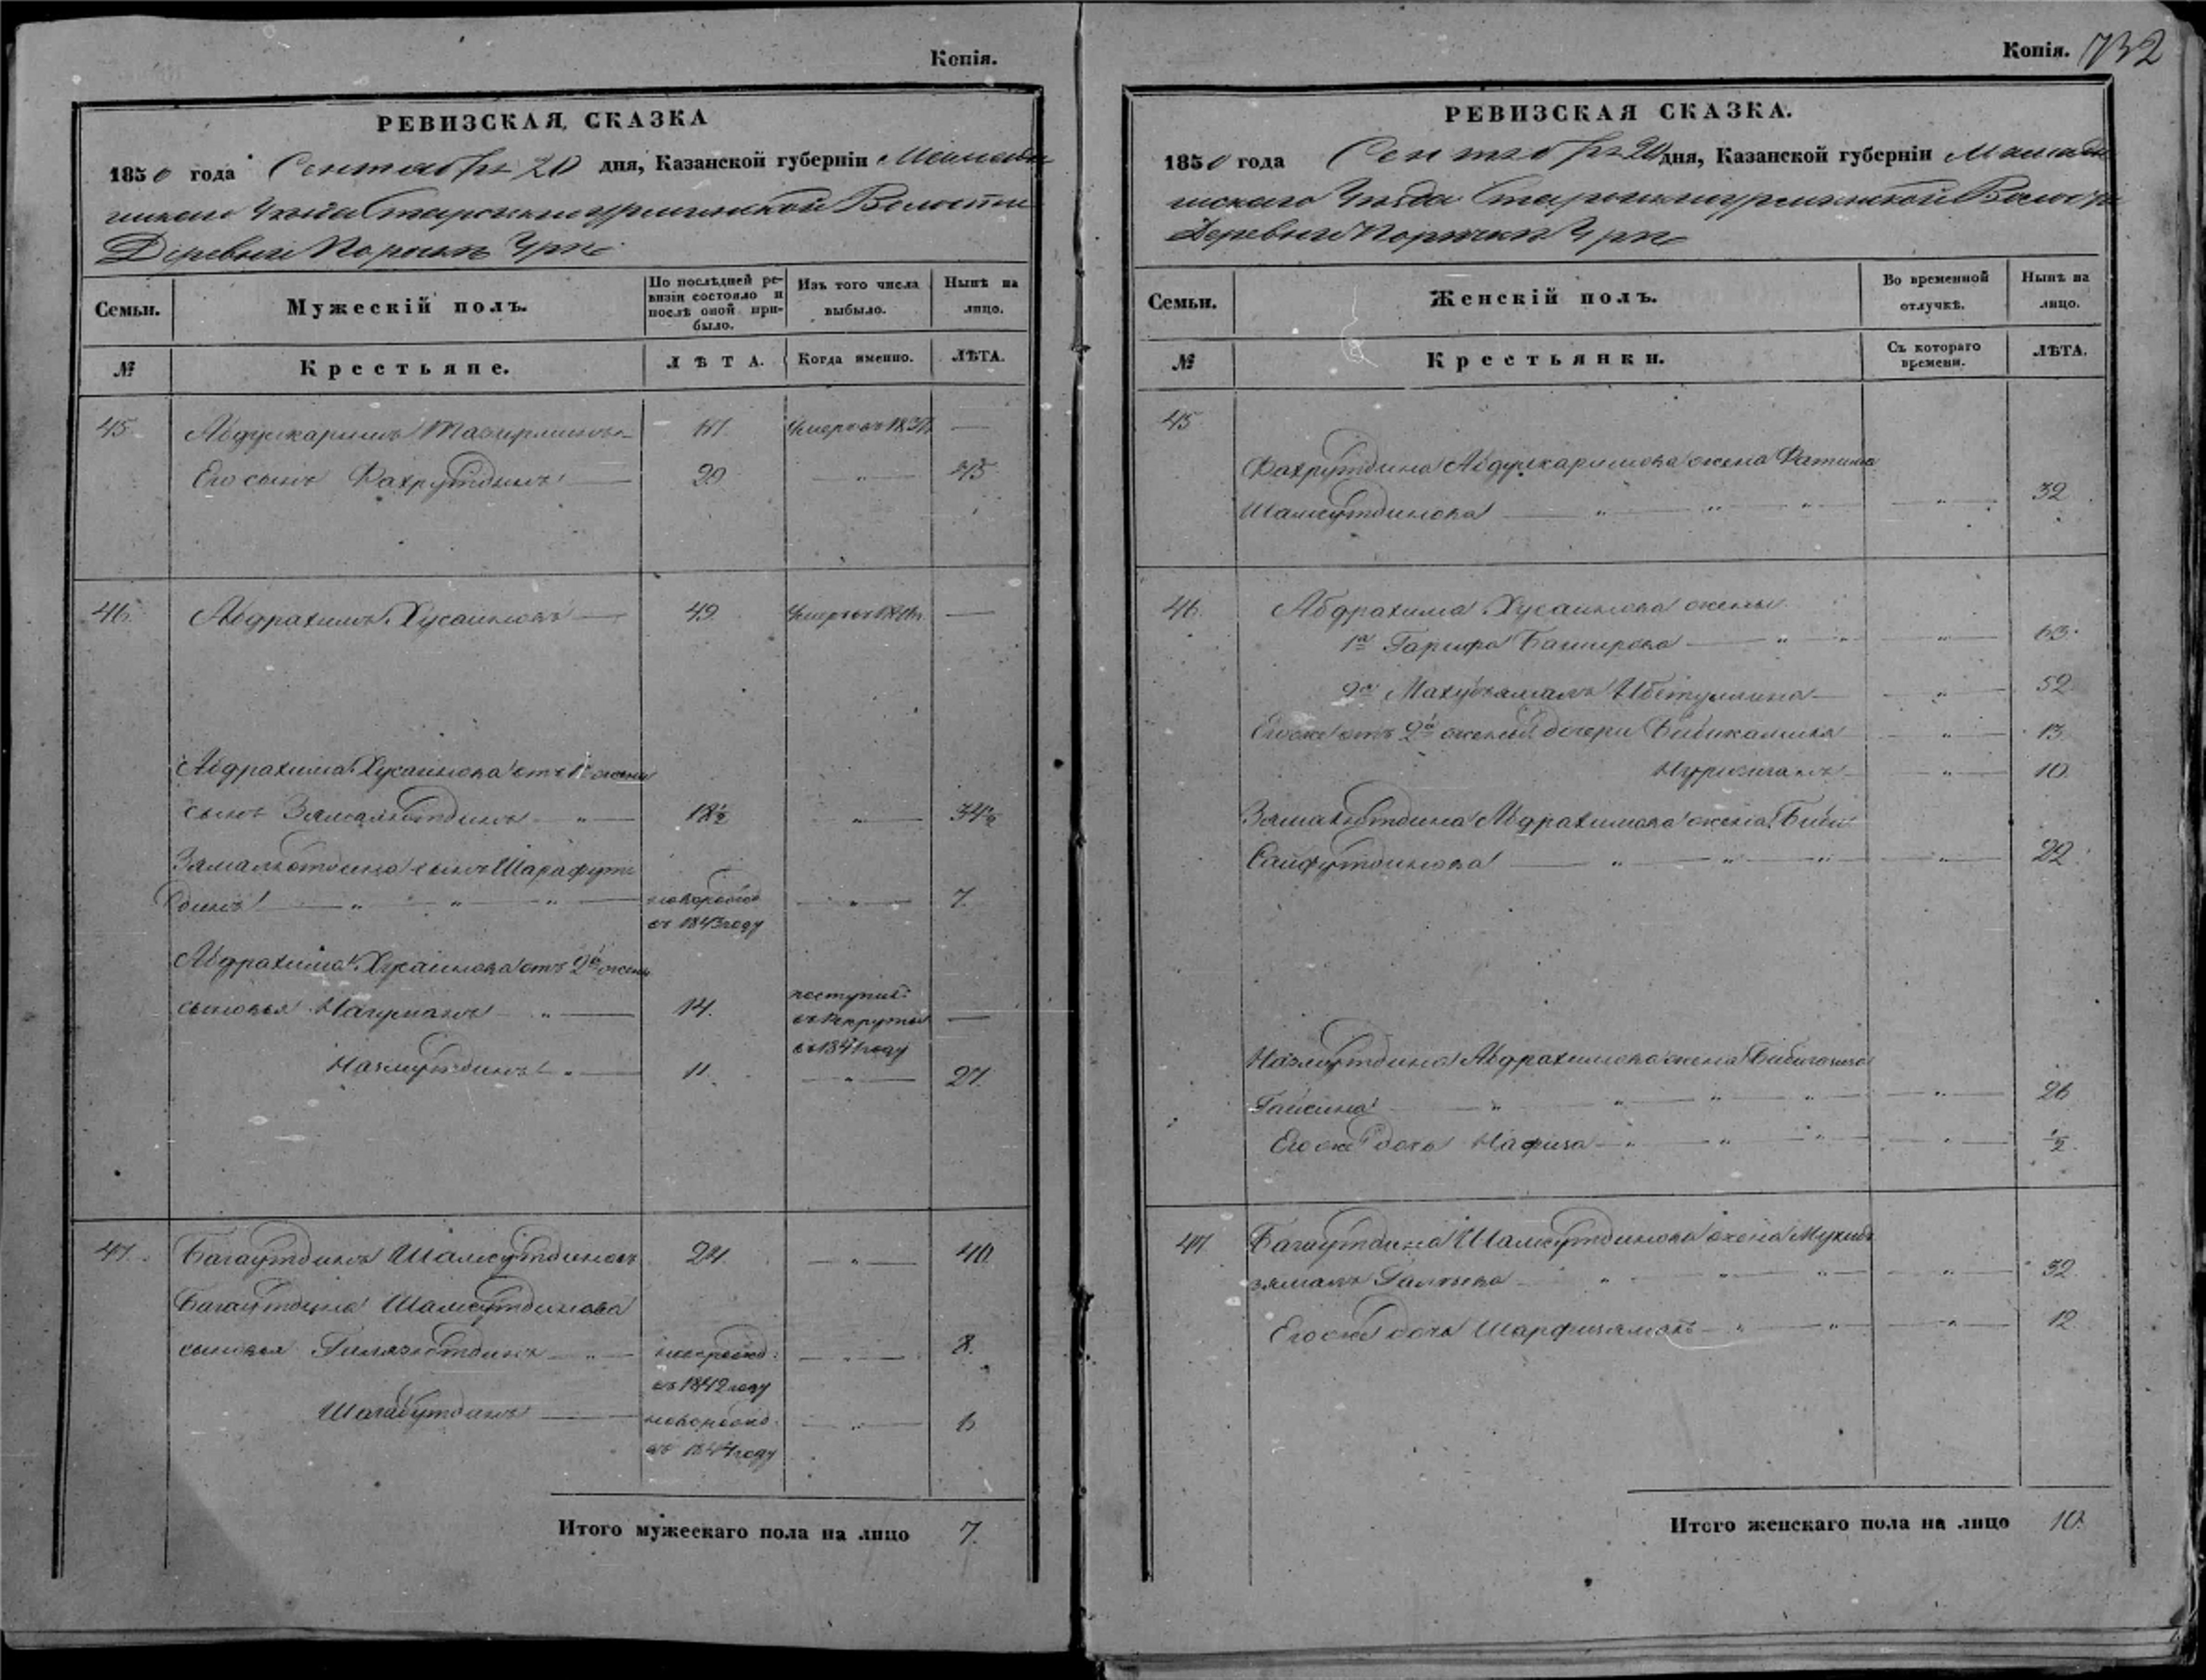 Копія.
РЕВИЗСКАЯ СКАЗКА
1850 года Сентября 20 дня, Казанской губерніи Мамады
шскаго Уѣзда Волости
Деревни
Семьи. Мужескій полъ. По послѣдней ревизіи состояло и послѣ оной прибыло. Изъ того числа выбыло. Нынѣ на лицо.
№ Крестьяне. ЛѢТА. Когда именно. ЛѢТА.
45. Абдулкаримъ 61 умеръ въ —
Его сынъ Фахрутдинъ 29 " 45
46. Абдрахимъ Хусаиновъ 49 умеръ въ —
Абдрахима Хусаинова отъ 1й жены
сынъ Замалютдинъ " 18½ " 34½
Замалютдина сынъ Шарафут
динъ " " " новорожд " 7.
въ 1843 году
Абдрахима Хусаинова отъ 2й жены
сыновья Нагуманъ " 14. поступил: въ рекруты въ 1841 году —
Назмутдинъ " 11. " 27.
47. Багаутдинъ Шамсутдиновъ 24. " 40
Багаутдина Шамсутдинова
сыновья Гилязютдинъ " новорожд: " 8.
въ 1842 году
Шагабутдинъ новорожд. " 6
въ 1844 году
Итого мужескаго пола на лицо 7.
Копія. 732
РЕВИЗСКАЯ СКАЗКА.
1850 года Сентября 20 дня, Казанской губерніи Мамады
шскаго Уѣзда Волости
Деревни
Семьи. Женскій полъ. Во временной отлучкѣ. Нынѣ на лицо.
№ Крестьянки. Съ котораго времени. ЛѢТА.
45
Фахрутдина Абдулкаримова жена Фатима
Шамсутдинова " " " " 32
46. Абдрахима Хусаинова жены
1я Гарифа Баширова " " " 63.
2я " 52
Его же отъ 2й жены дочери " 13
" 10
Замалютдина Абдрахимова жена Биби
Сайфутдинова " " " " 22.
Назмутдина Абдрахимова жена
Гайсина " " " " " 26
Его же дочь Нафиза " " " " ½
47 Багаутдина Шамсутдинова жена
" " " " 32
Его же дочь " " " 12
Итого женскаго пола на лицо 10.